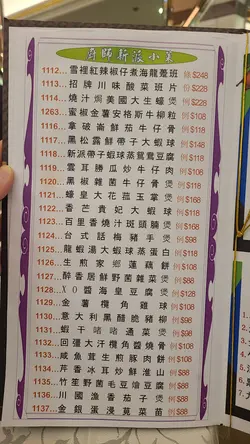 廚師新派小菜
1112...雪裡紅辣椒仔煮海龍躉班 條$248
1113...招牌川味酸菜班片 份$228
1114...燒汁焗美國大生蠔煲 例$208
1263...蜜椒金薯安格斯牛柳粒 例$108
1116...拿破崙鮮茄牛仔骨 例$118
1117...黑松露鮮帶子大蝦球 例$168
1118...新派帶子蝦球蒸鴛鴦豆腐 例$168
1119...雲耳勝瓜炒牛仔肉 例$108
1120...黑椒雜菌牛仔骨煲 例$118
1121...蠔皇大花菇玉掌 例$168
1122...香芒貴妃大蝦球 例$168
1123...百里香燒汁斑頭腩 例$168
1124...台式話梅豬手煲 例$98
1125...龍蝦湯大蝦球蒸蛋白 例$118
1126...生煎家鄉蓮藕餅 例$108
1127...醉香居鮮野菌雜菜煲 例$88
1128...XO醬海皇豆腐煲 例$128
1129...金薯欖角雞球 例$108
1130...意大利黑醋脆豬柳 例$98
1131...蝦干啫啫通菜煲 例$98
1132...回彊大汗欖角醬燒骨 例$108
1133...咸魚茸生煎豚肉餅 例$108
1134...芹香冰耳炒鮮淮山 例$88
1135...竹笙野菌毛豆燴豆腐 例$88
1136...川國漁香茄子煲 例$88
1137...金銀蛋浸莧菜苗 例$88